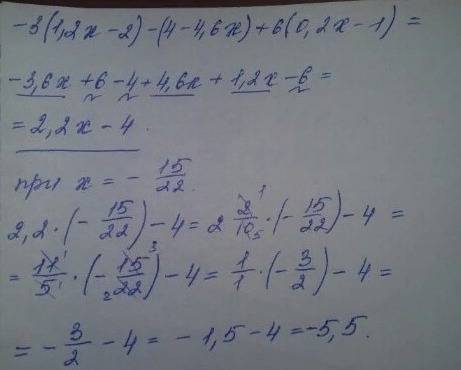 -3(1,2x-2)-(4-4,6x)+6(0,2x-1)=
-3,6x+6-4+4,6x+1,2x-6=
=2,2x-4.
при x=-15/22.
2,2·(-15/22)-4=2 2/10·(-15/22)-4=
=11/5·(-15/22)-4=1/1·(-3/2)-4=
=-3/2-4=-1,5-4=-5,5.